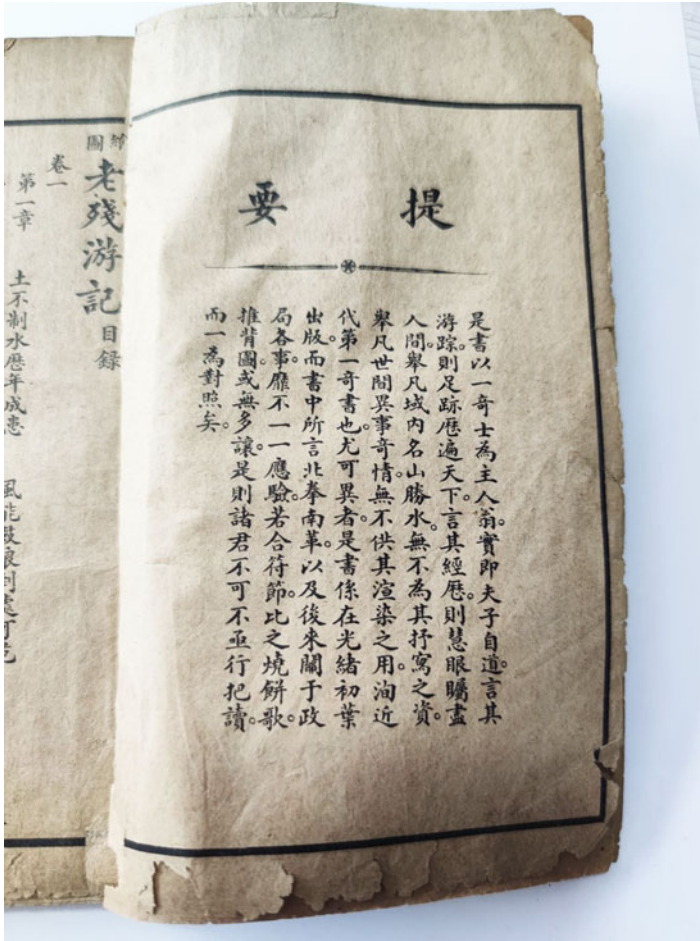 提要
是書以一奇士為主人翁。實即夫子自道。言其
游踪。則足跡歷遍天下。言其經歷。則慧眼矚盡
人間。舉凡域內名山勝水。無不為其抒寫之資。
舉凡世間異事奇情。無不供其渲染之用。洵近
代第一奇書也。尤可異者。是書係在光緒初葉
出版。而書中所言北拳南革。以及後來關于政
局各事。靡不一一應驗。若合符節。比之燒餅歌。
推背圖。或無多讓。是則諸君不可不亟行把讀。
而一為對照矣。
繪圖
老殘游記目錄
卷一
第一章
土不制水歷年成患
風能鼓浪到處可危